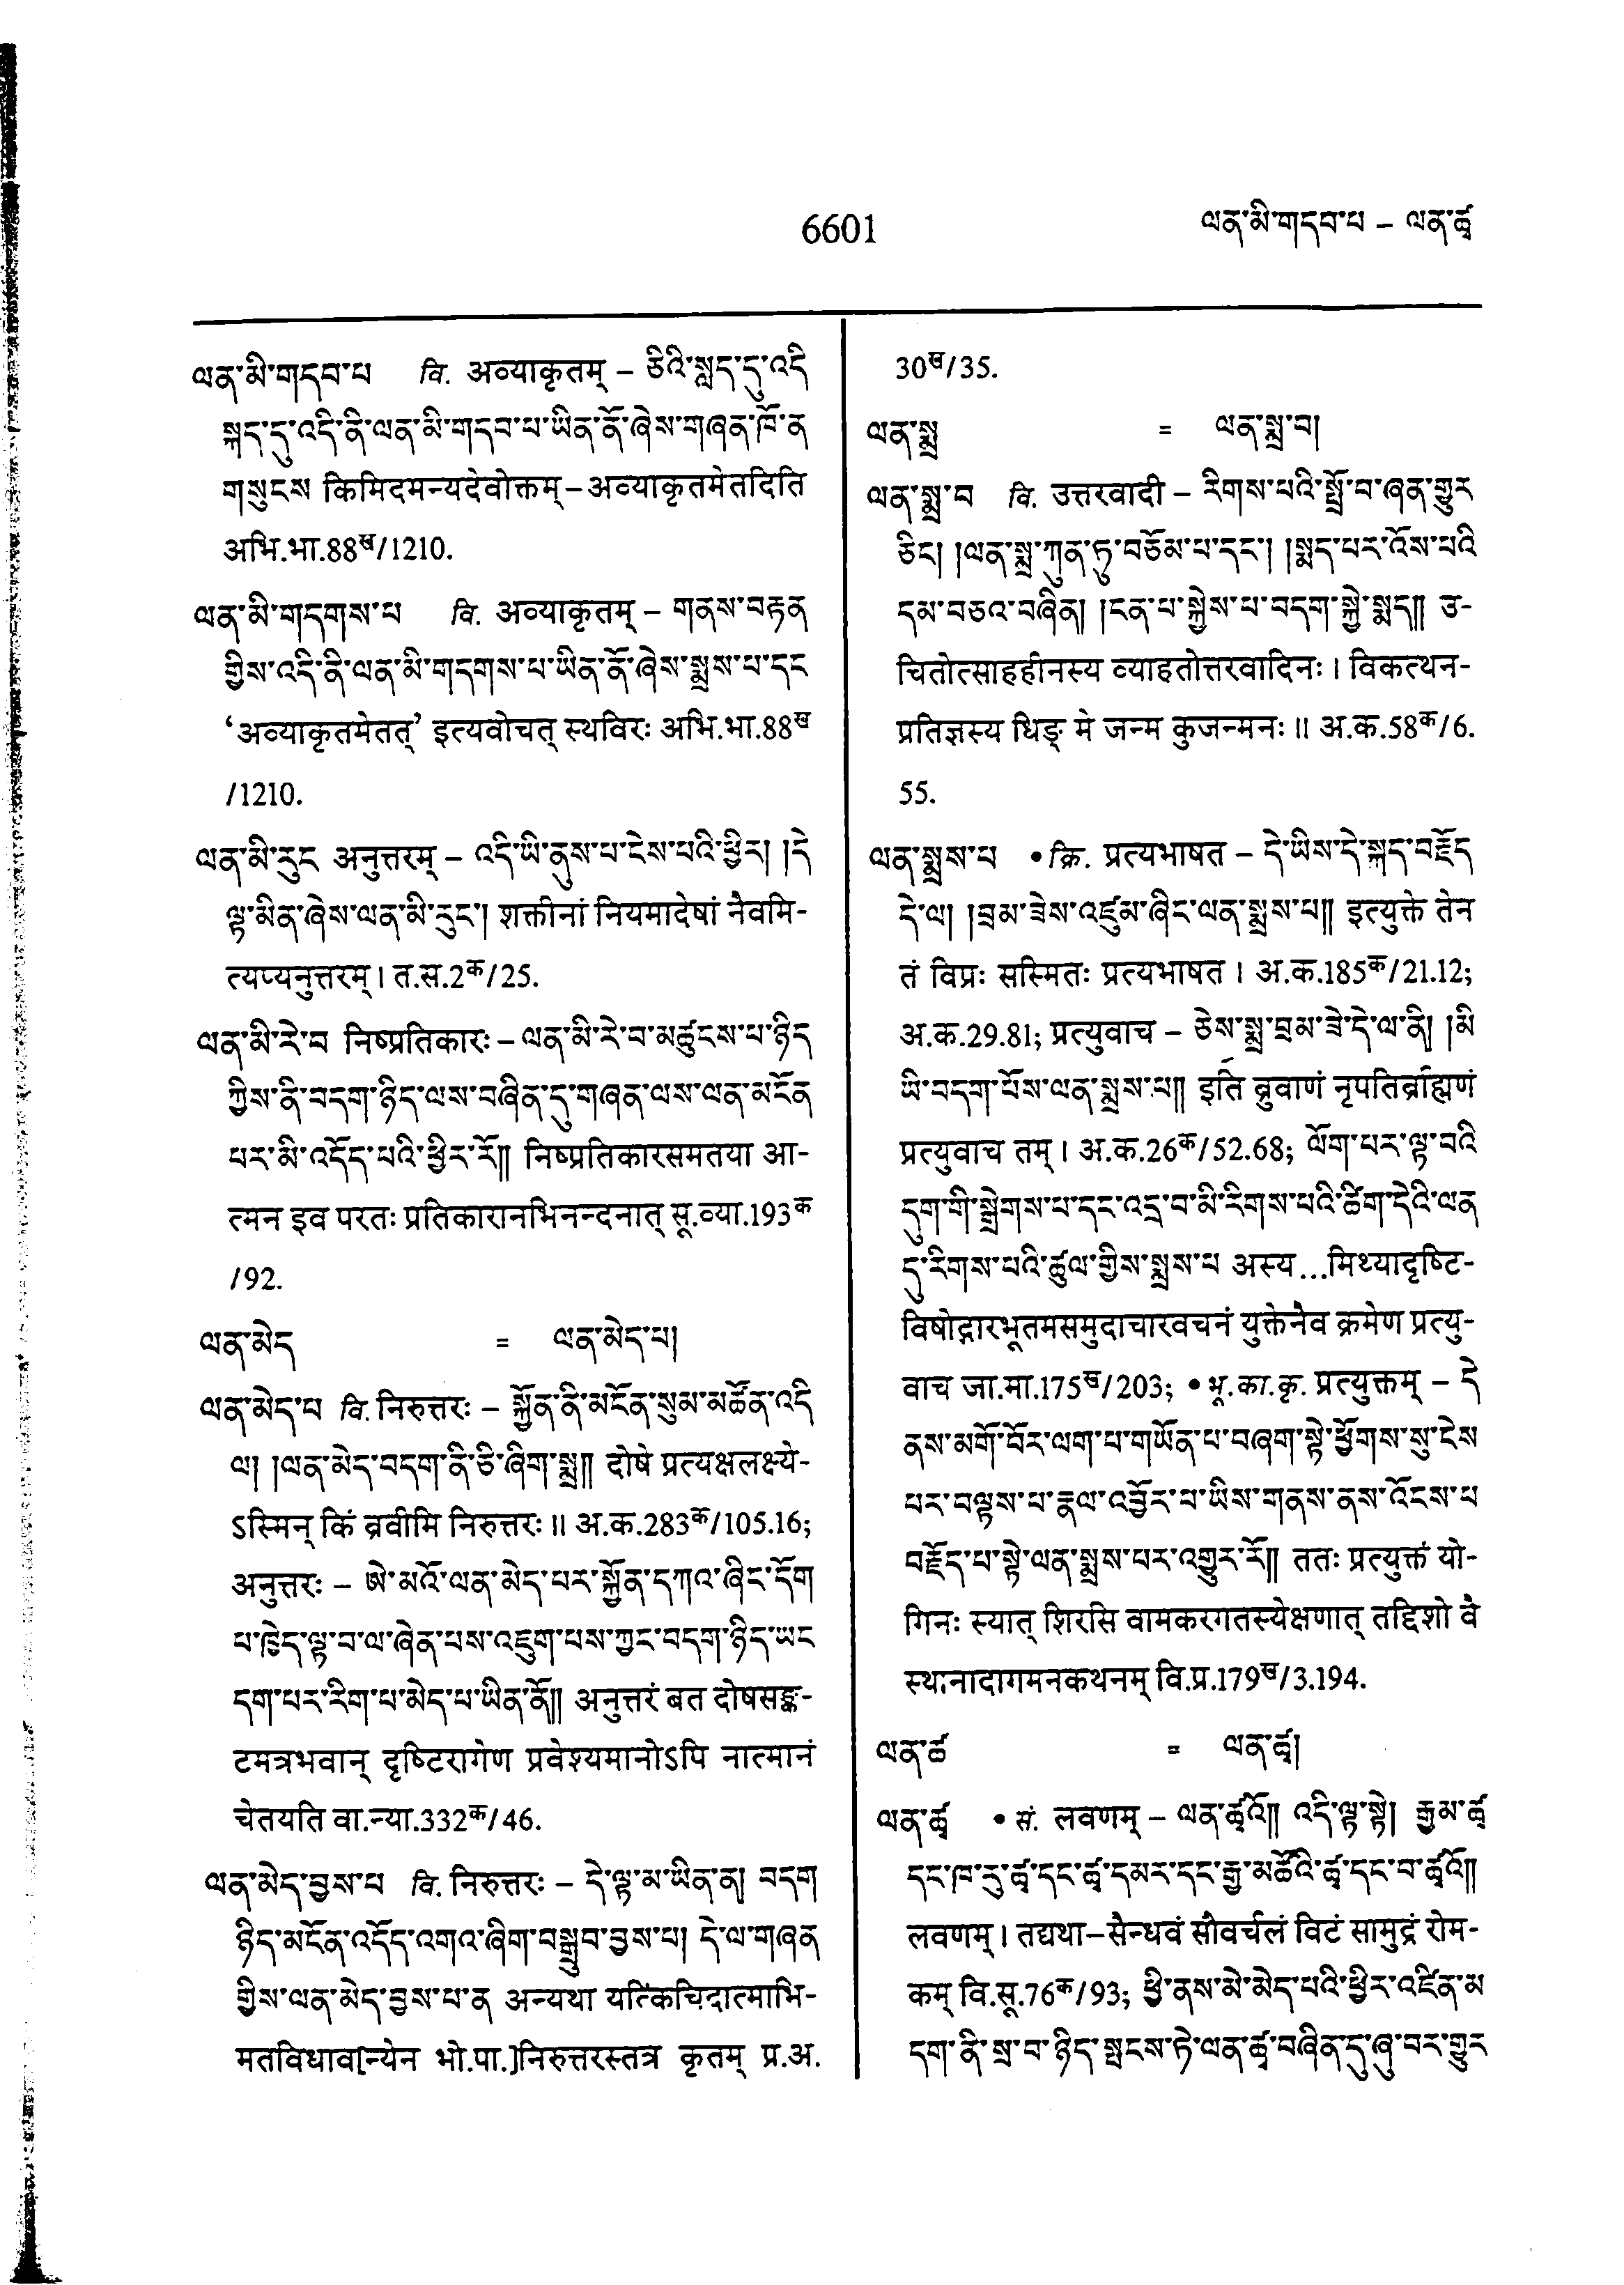 6601
ལན་མི་གདབ་པ – ལན་ཚྭ
ལན་མི་གདབ་པ वि. अव्याकृतम् – ཅིའི་སླད་དུ་འདི
སྐད་དུ་འདི་ནི་ལན་མི་གདབ་པ་ཡིན་ནོ་ཞེས་གཞན་ཁོ་ན
གསུངས किमिदमन्यदेवोक्तम्–अव्याकृतमेतदिति
अभि.भा.88ख/1210.
ལན་མི་གདགས་པ वि. अव्याकृतम् – གནས་བརྟན
གྱིས་འདི་ནི་ལན་མི་གདགས་པ་ཡིན་ནོ་ཞེས་སྨྲས་པ་དང
‘अव्याकृतमेतत्’ इत्यवोचत् स्थविरः अभि.भा.88ख
/1210.
ལན་མི་རུང अनुत्तरम् – འདི་ཡི་ནུས་པ་ངེས་པའི་ཕྱིར། །དེ
ལྟ་མིན་ཞེས་ལན་མི་རུང་། शक्तीनां नियमादेषां नैवमि-
त्यप्यनुत्तरम्। त.स.2क/25.
ལན་མི་རེ་བ निष्प्रतिकारः – ལན་མི་རེ་བ་མཚུངས་པ་ཉིད
ཀྱིས་ནི་བདག་ཉིད་ལས་བཞིན་དུ་གཞན་ལས་ལན་མངོན
པར་མི་འདོད་པའི་ཕྱིར་རོ༎ निष्प्रतिकारसमतया आ-
त्मन इव परतः प्रतिकारानभिनन्दनात् सू.व्या.193क
/92.
ལན་མེད = ལན་མེད་པ།
ལན་མེད་པ वि. निरुत्तरः – སྐྱོན་ནི་མངོན་སུམ་མཚོན་འདི
ལ། །ལན་མེད་བདག་ནི་ཅི་ཞིག་སྨྲ༎ दोषे प्रत्यक्षलक्ष्ये-
ऽस्मिन् किं ब्रवीमि निरुत्तरः॥ अ.क.283क/105.16;
अनुत्तरः – ཨེ་མའོ་ལན་མེད་པར་སྐྱོན་དཀའ་ཞིང་དོག
པ་ཁྱེད་ལྟ་བ་ལ་ཞེན་པས་འཇུག་པས་ཀྱང་བདག་ཉིད་ཡང
དག་པར་རིག་པ་མེད་པ་ཡིན་ནོ༎ अनुत्तरं बत दोषसङ्क-
टमत्रभवान् दृष्टिरागेण प्रवेश्यमानोऽपि नात्मानं
चेतयति वा.न्या.332क/46.
ལན་མེད་བྱས་པ वि. निरुत्तरः – དེ་ལྟ་མ་ཡིན་ན། བདག
ཉིད་མངོན་འདོད་འགའ་ཞིག་བསྒྲུབ་བྱས་པ། དེ་ལ་གཞན
གྱིས་ལན་མེད་བྱས་པ་ན अन्यथा यत्किंचिदात्माभि-
मतविधाव[न्येन भो.पा.]निरुत्तरस्तत्र कृतम् प्र.अ.
30ख/35.
ལན་སྨྲ = ལན་སྨྲ་བ།
ལན་སྨྲ་བ वि. उत्तरवादी – རིགས་པའི་སྤྲོ་བ་ཞན་གྱུར
ཅིང། །ལན་སྨྲ་ཀུན་ཏུ་བཅོམ་པ་དང་། །སྨད་པར་འོས་པའི
དམ་བཅའ་བཞིན། །ངན་པ་སྐྱེས་པ་བདག་སྐྱེ་སྨད༎ उ-
चितोत्साहहीनस्य व्याहतोत्तरवादिनः। विकत्थन-
प्रतिज्ञस्य धिङ् मे जन्म कुजन्मनः॥ अ.क.58क/6.
55.
ལན་སྨྲས་པ • क्रि. प्रत्यभाषत – དེ་ཡིས་དེ་སྐད་བརྗོད
དེ་ལ། །བྲམ་ཟེས་འཛུམ་ཞིང་ལན་སྨྲས་པ༎ इत्युक्ते तेन
तं विप्रः सस्मितः प्रत्यभाषत। अ.क.185क/21.12;
अ.क.29.81; प्रत्युवाच – ཅེས་སྨྲ་བྲམ་ཟེ་དེ་ལ་ནི། །མི
ཡི་བདག་པོས་ལན་སྨྲས་པ༎ इति ब्रुवाणं नृपतिर्ब्राह्मणं
प्रत्युवाच तम्। अ.क.26क/52.68; ལོག་པར་ལྟ་བའི
དུག་གི་སྒྲེགས་པ་དང་འདྲ་བ་མི་རིགས་པའི་ཚིག་དེའི་ལན
དུ་རིགས་པའི་ཚུལ་གྱིས་སྨྲས་པ अस्य...मिथ्यादृष्टि-
विषोद्गारभूतमसमुदाचारवचनं युक्तेनैव क्रमेण प्रत्यु-
वाच जा.मा.175ख/203; • भू.का.कृ. प्रत्युक्तम् – དེ
ནས་མགོ་བོར་ལག་པ་གཡོན་པ་བཞག་སྟེ་ཕྱོགས་སུ་ངེས
པར་བལྟས་པ་རྣལ་འབྱོར་བ་ཡིས་གནས་ནས་འོངས་པ
བརྗོད་པ་སྟེ་ལན་སྨྲས་པར་འགྱུར་རོ༎ ततः प्रत्युक्तं यो-
गिनः स्यात् शिरसि वामकरगतस्येक्षणात् तद्दिशो वै
स्थानादागमनकथनम् वि.प्र.179ख/3.194.
ལན་ཚ = ལན་ཚྭ།
ལན་ཚྭ • सं. लवणम् – ལན་ཚྭའོ༎ འདི་ལྟ་སྟེ། རྒྱམ་ཚྭ
དང་ཁ་རུ་ཚྭ་དང་ཚྭ་དམར་དང་རྒྱ་མཚོའི་ཚྭ་དང་བ་ཚྭའོ༎
लवणम्। तद्यथा–सैन्धवं सौवर्चलं विटं सामुद्रं रोम-
कम् वि.सू.76क/93; ཕྱི་ནས་མེ་མེད་པའི་ཕྱིར་འཛིན་མ
དག་ནི་སྲ་བ་ཉིད་སྤངས་ཏེ་ལན་ཚྭ་བཞིན་དུ་ཞུ་བར་གྱུར